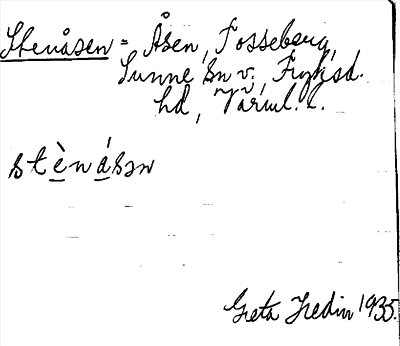 Stenåsen = Åsen, Fosseberg,
Sunne sn v. Fryksd.
hd, Värml. l.
stè̱ná̱sən
Greta Hedin 1935.